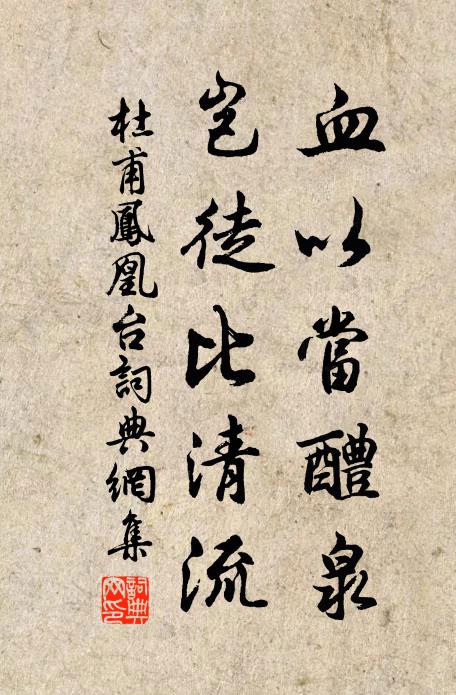 血以當醴泉
豈徒比清流
杜甫鳳凰台詞典網集
詞典
网印